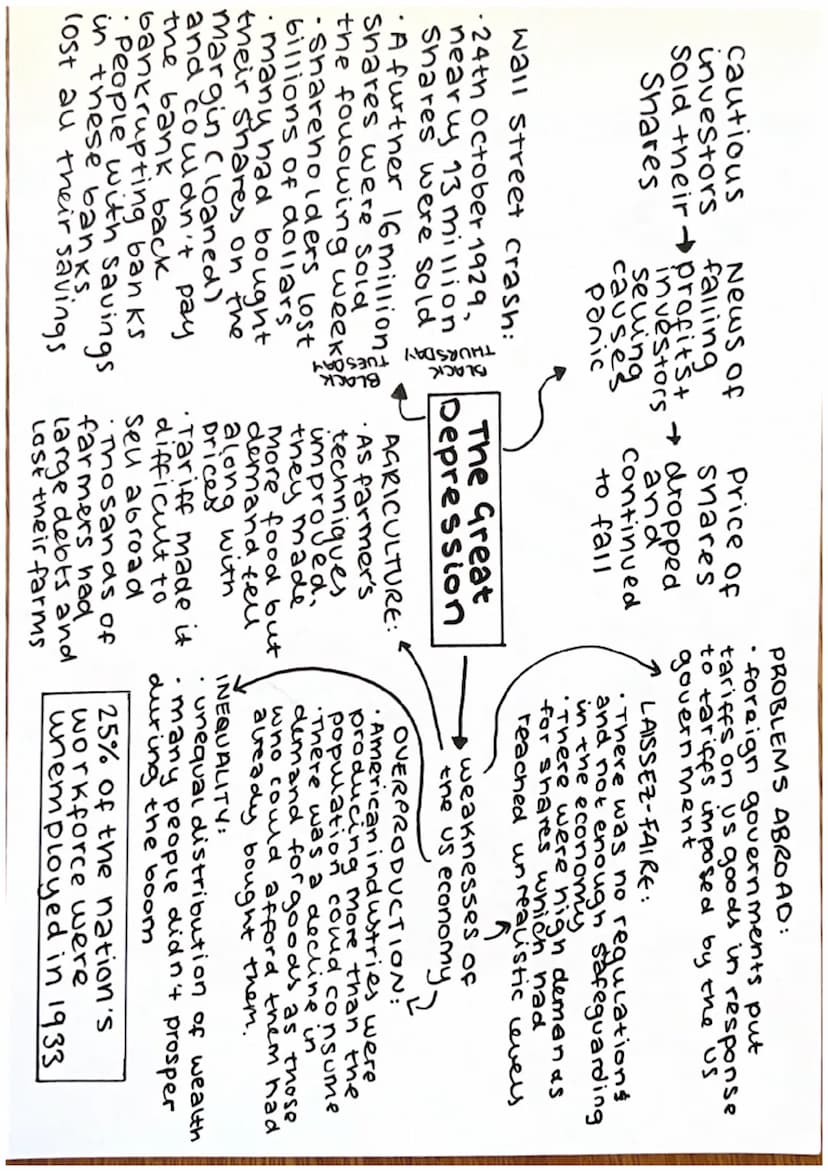 cautious
investors
sold their
shares
News of
falling
profits +
investors
selling
causes
panic
Price of
shares
dropped
and
continued
to fall
The Great
Depression
Wall street crash:
· 24th october 1929,
nearly 13 million
shares were sold
BLACK
THURSDAY
· A further 16 million
shares were sold
the following week
BLACK
TUESDAY
· shareholders lost
billions of dollars
· many had bought
their shares on the
margin (loaned)
and couldn't pay
the bank back
bankrupting banks
· People with savings
in these banks
lost all their savings
weaknesses of
the us economy
PROBLEMS ABROAD:
· foreign governments put
tariffs on us goods in response
to tariffs imposed by the us
government
LAISSEZ-FAIRE:
· There was no regulations
and not enough safeguarding
in the economy
· There were high demands
for shares which had
reached unrealistic levels
OVERPRODUCTION:
· American industries were
producing more than the
population could consume
· There was a decline in
demand for goods as those
who could afford them had
already bought them.
AGRICULTURE:
· As farmer's
techniques
improved,
they made
more food but
demand fell
along with
prices
· Tariff made it
difficult to
sell abroad
· Thosands of
farmers had
large debts and
lost their farms
INEQUALITY:
· unequal distribution of wealth
· many people didn't prosper
during the boom
25% of the nation's
workforce were
unemployed in 1933